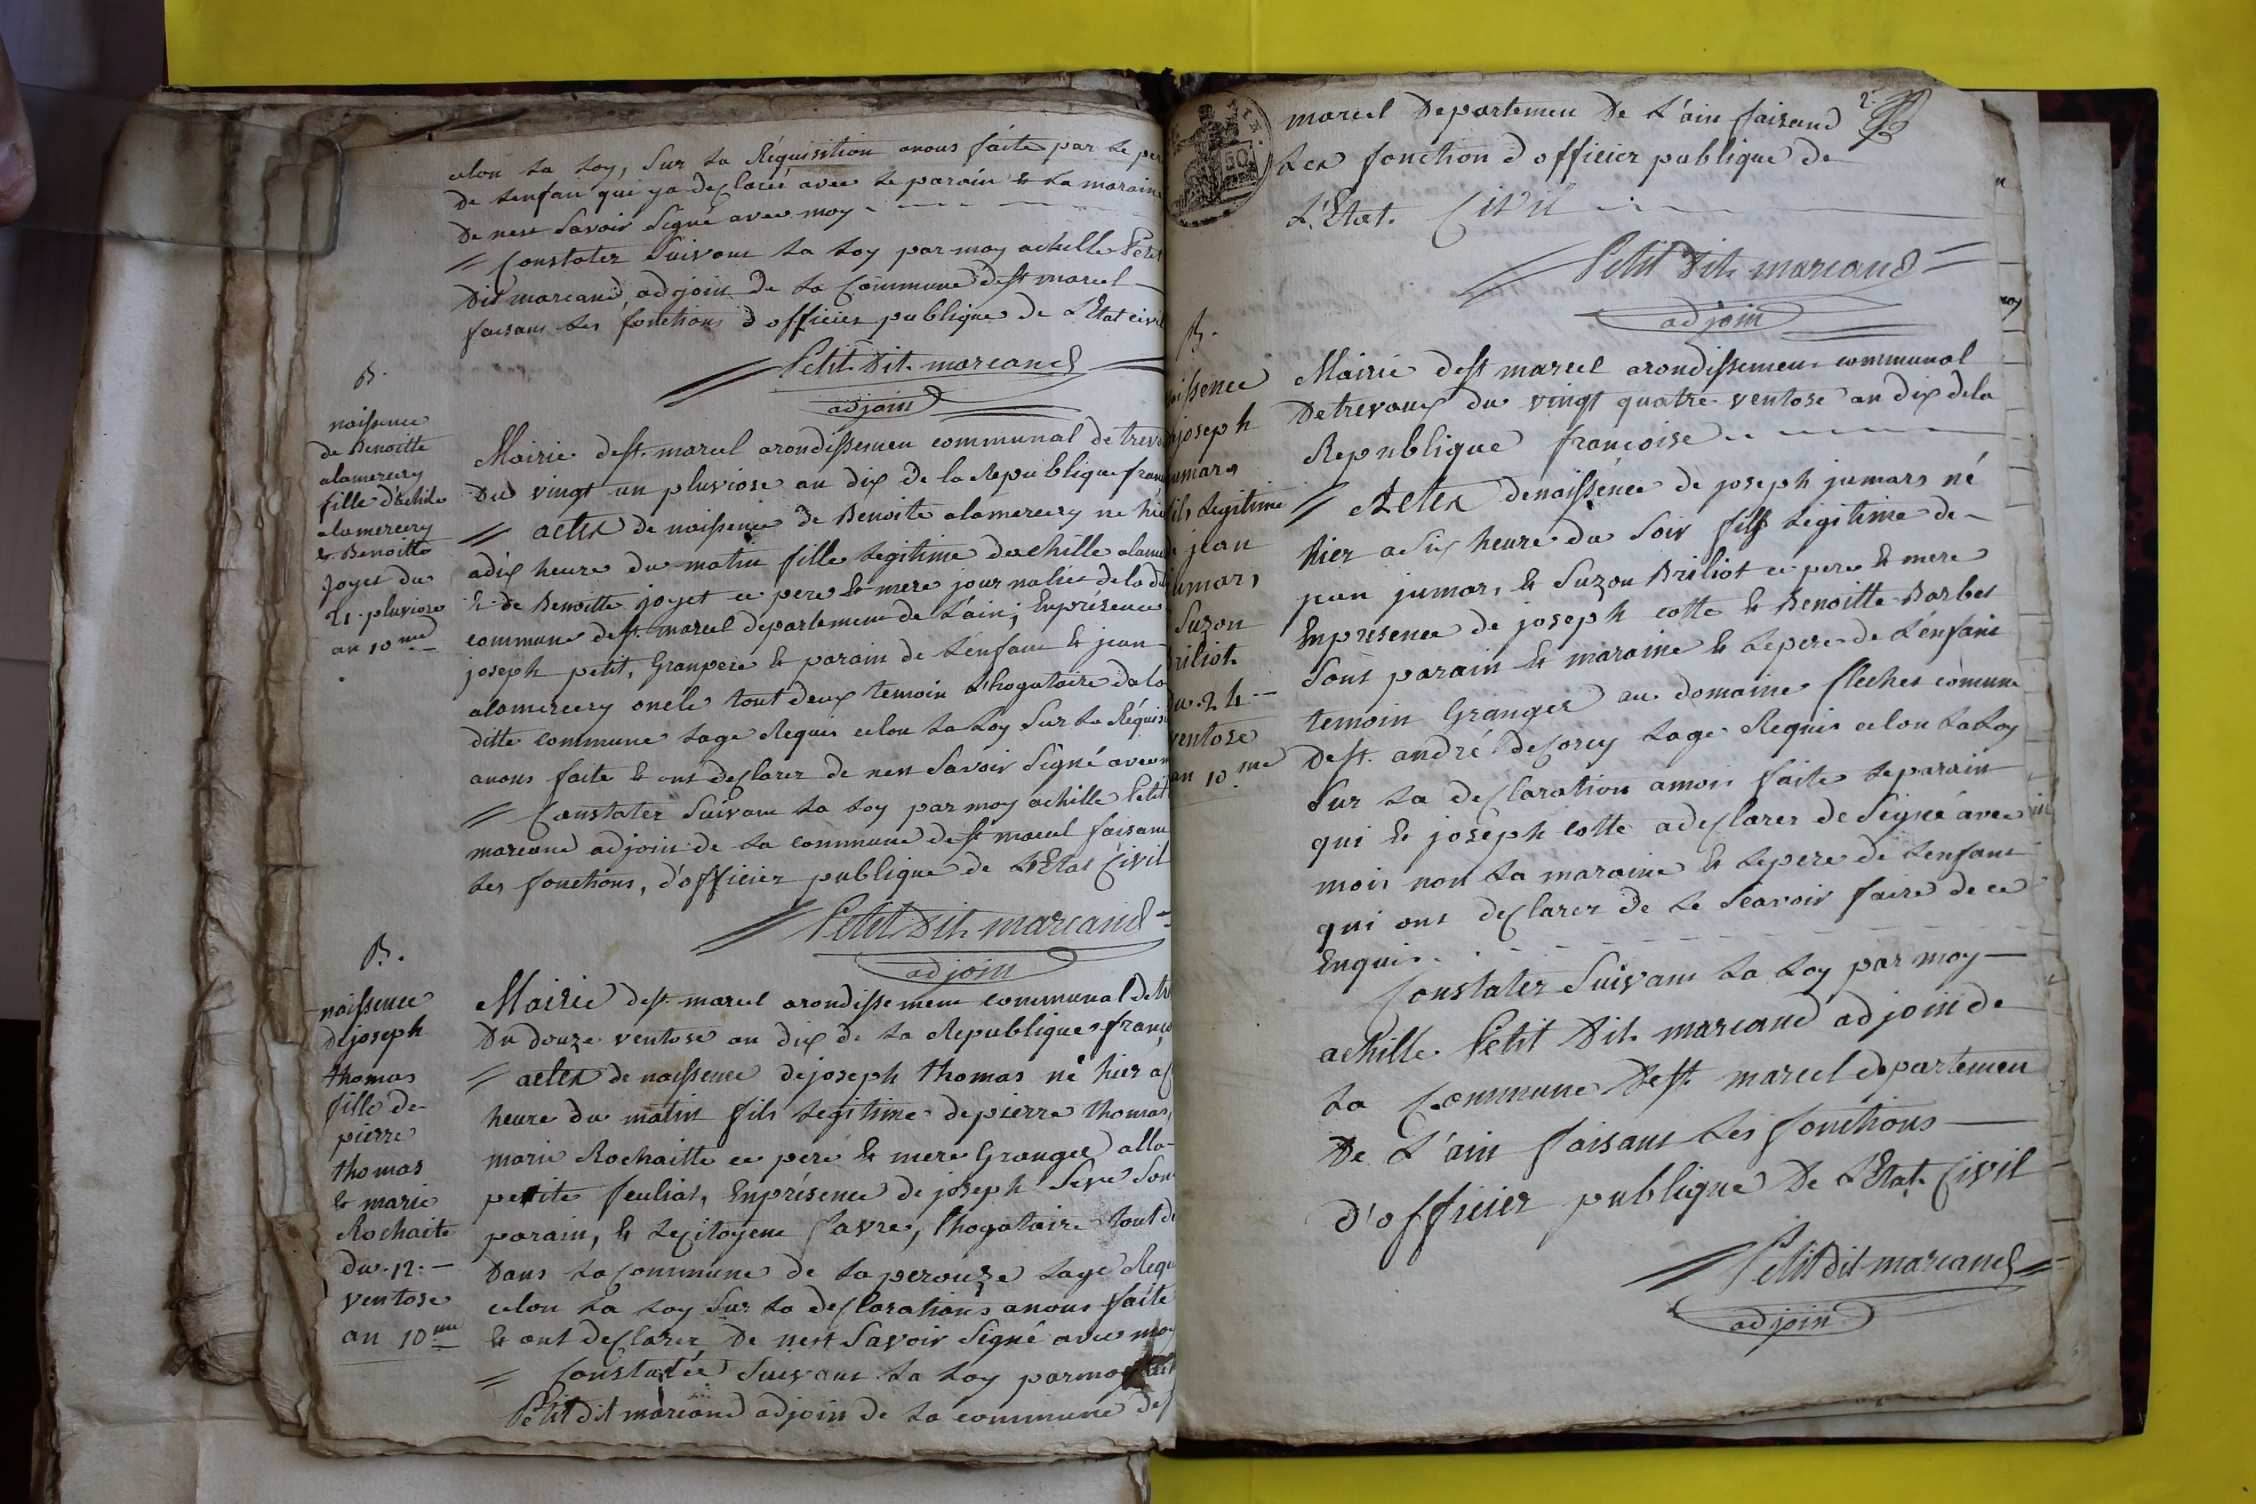 celon La Loy, Sur La Réquisition anous faite par Le per
De Lenfan qui ya declaréé avec Le parain & La maraine
De nest Savoir Signé avec moy
Constater Suivant La Loy par moy achille Petit
Dit marcand, adjoin De La Commune de st marcel
faisans Les fonctions d'officier publique De L'Etat civil
Petit Dit marcand
adjoin
B.
naissence
de Benoitte
alamercery
fille d'achile
alamercery
& Benoitte
Joyet du
21. pluviose
an 10me
Mairie de st. marcel arondissemen communal de trevo
Du vingt un pluviose an dix De la Republique franc
actes de naissence De Benoite alamercery né hier
a dix heure du matin fille Legitime dachille alamer
& De Benoitte joyet ce pere & mere journalier de la d
commune de st. marcel departement de L'ain; Enprésence
joseph petit, Granpere & parain de L'enfant & jean
alamercery oncle tout deux temoin L'hogataire de la
ditte commune Lage Requis celon La Loy Sur La Réquisi
anous faite & ont declarer de nen Savoir Signé avec m
Constater Suivant La Loy par moy achille Petit
marcand adjoin de La commune de st marcel faisant
Les fonctions, d'officier publique de L'Etat Civil
Petit Dit marcand
adjoin
B.
naissence
de joseph
thomas
fille de
pierre
thomas
& marie
Rochaite
du .12.
ventose
an 10me
Mairie de st. marcel arondissement communal De tr
Du douze ventose an dix de La Republique franço
actes de naissence de joseph thomas né hier a
heure du matin fils Legitime de pierre thomas,
marie Rochaitte ce pere & mere Granger a la
petite feuliat, Enprésence de joseph Seve Son
parain, & Le citoyene favre, l'hogataire tout d
Dans La Commune de La perouze Lage Requ
celon La Loy Sur La declarations anous faite
& ont declarer De nest Savoir Signé avec moy
Constatée Suivant La Loy par moy
Petit dit marcand adjoin de La commune de s
marcel Departemen De L'ain faisand
Les fonction d officier publique de
L'Etat. Civil
Petit Dit marcand
adjoin
2.
B.
naissence
joseph
jumars
fils Legitime
de jean
jumars
Suzon
Briliot
du .24
ventose
an 10me
Mairie de st marcel arondissemen communal
De trevoux du vingt quatre ventose an dix de la
Republique françoise
Actes de naissence de joseph jumars né
hier a dix heure du Soir fils Legitime de
jean jumars, & Suzon Briliot ce pere & mere
Enpresence de joseph cotte & Benoitte Barbet
Sont parain & maraine & Le pere de L'enfant
temoin Granger au domaine fleches comune
De st. andré de Corcy Lage Requis celon La Loy
Sur La declaration amois faite Le parain
qui & joseph cotte a declarer de Signé avec
mois non La maraine & Le pere de Lenfant
qui ont declarer de Le Scavoir faire de ce
Enquis.
Constater Suivant La Loy par moy
achille Petit Dit marcand adjoin de
La Commune De st. marcel departemen
De L'ain faisant Les fonctions
d'officier publique De L'Etat Civil
Petit dit marcand
adjoin